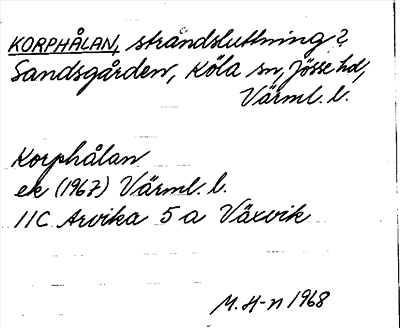 KORPHÅLAN, strandsluttning?
Sandsgården, Köla sn, Jösse hd,
Värml. l.
Korphålan
ek (1967) Värml. l.
11C Arvika 5 a Växvik
M. H-n 1968